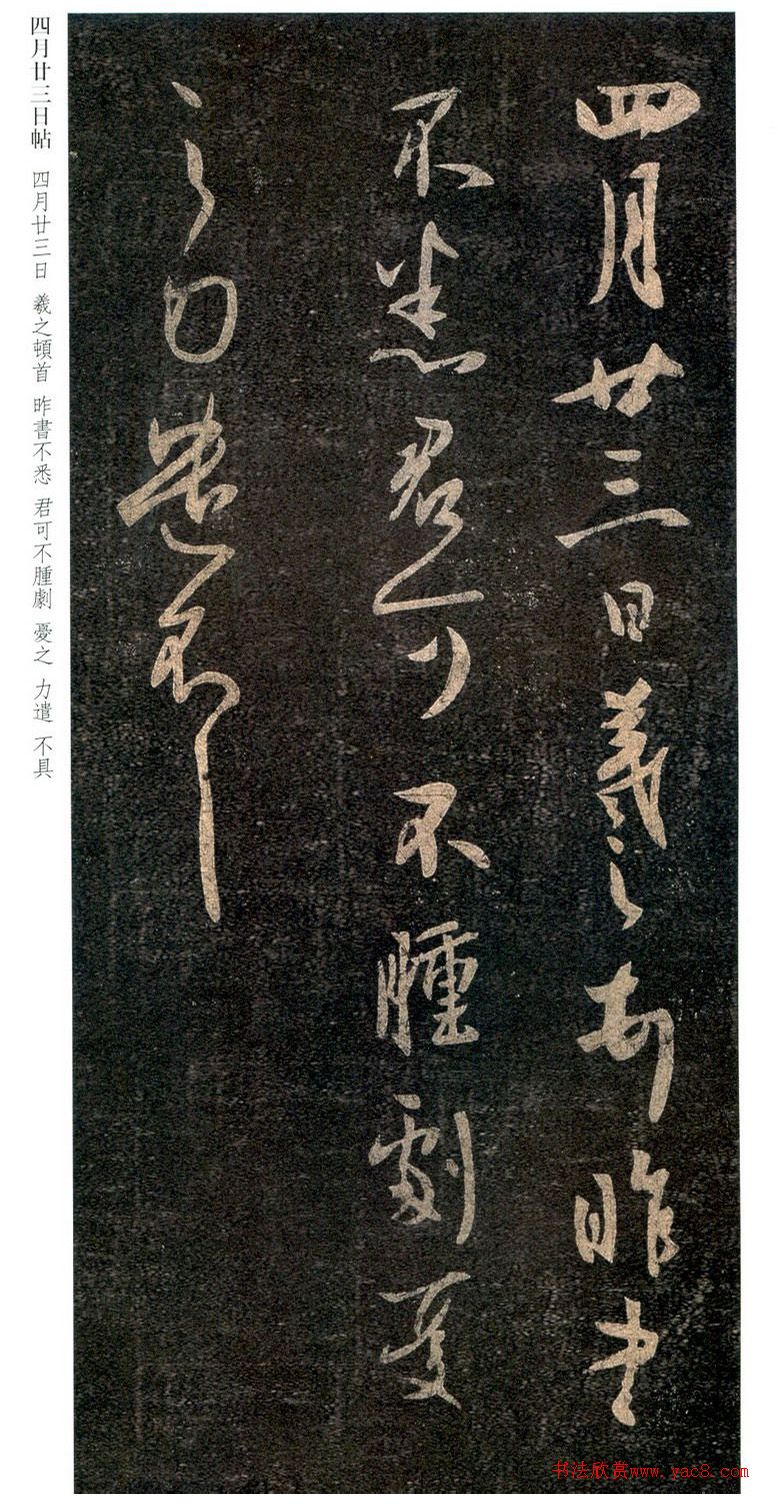 四月廿三日羲之頓首昨書
不悉君可不腫劇憂
之力遣不具
四月廿三日帖 四月廿三日 羲之頓首 昨書不悉 君可不腫劇 憂之 力遣 不具
书法欣赏www.yac8.com